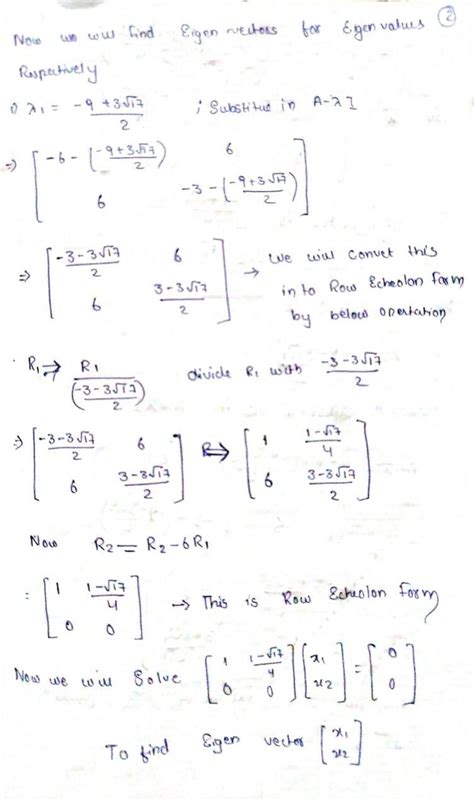 Now we will find Eigen vectors for Eigen values ②
Respectively
i) λ₁ = (-9 + 3√17)/2 ; Substitue in A-λI
⇒ [ -6 - ((-9+3√17)/2)   6 ; 6   -3 - ((-9+3√17)/2) ]
⇒ [ (-3-3√17)/2   6 ; 6   (3-3√17)/2 ] → We will convet this
in to Row Echeolon form
by below opertation
R₁ ⇒ R₁/((-3-3√17)/2) divide R₁ with (-3-3√17)/2
⇒ [ (-3-3√17)/2   6 ; 6   (3-3√17)/2 ] ⇔ [ 1   (1-√17)/4 ; 6   (3-3√17)/2 ]
Now R₂ = R₂ - 6R₁
= [ 1   (1-√17)/4 ; 0   0 ] → This is Row Echeolon form
Now we will Solve [ 1   (1-√17)/4 ; 0   0 ] [ x₁ ; x₂ ] = [ 0 ; 0 ]
To find Eigen vector [ x₁ ; x₂ ]